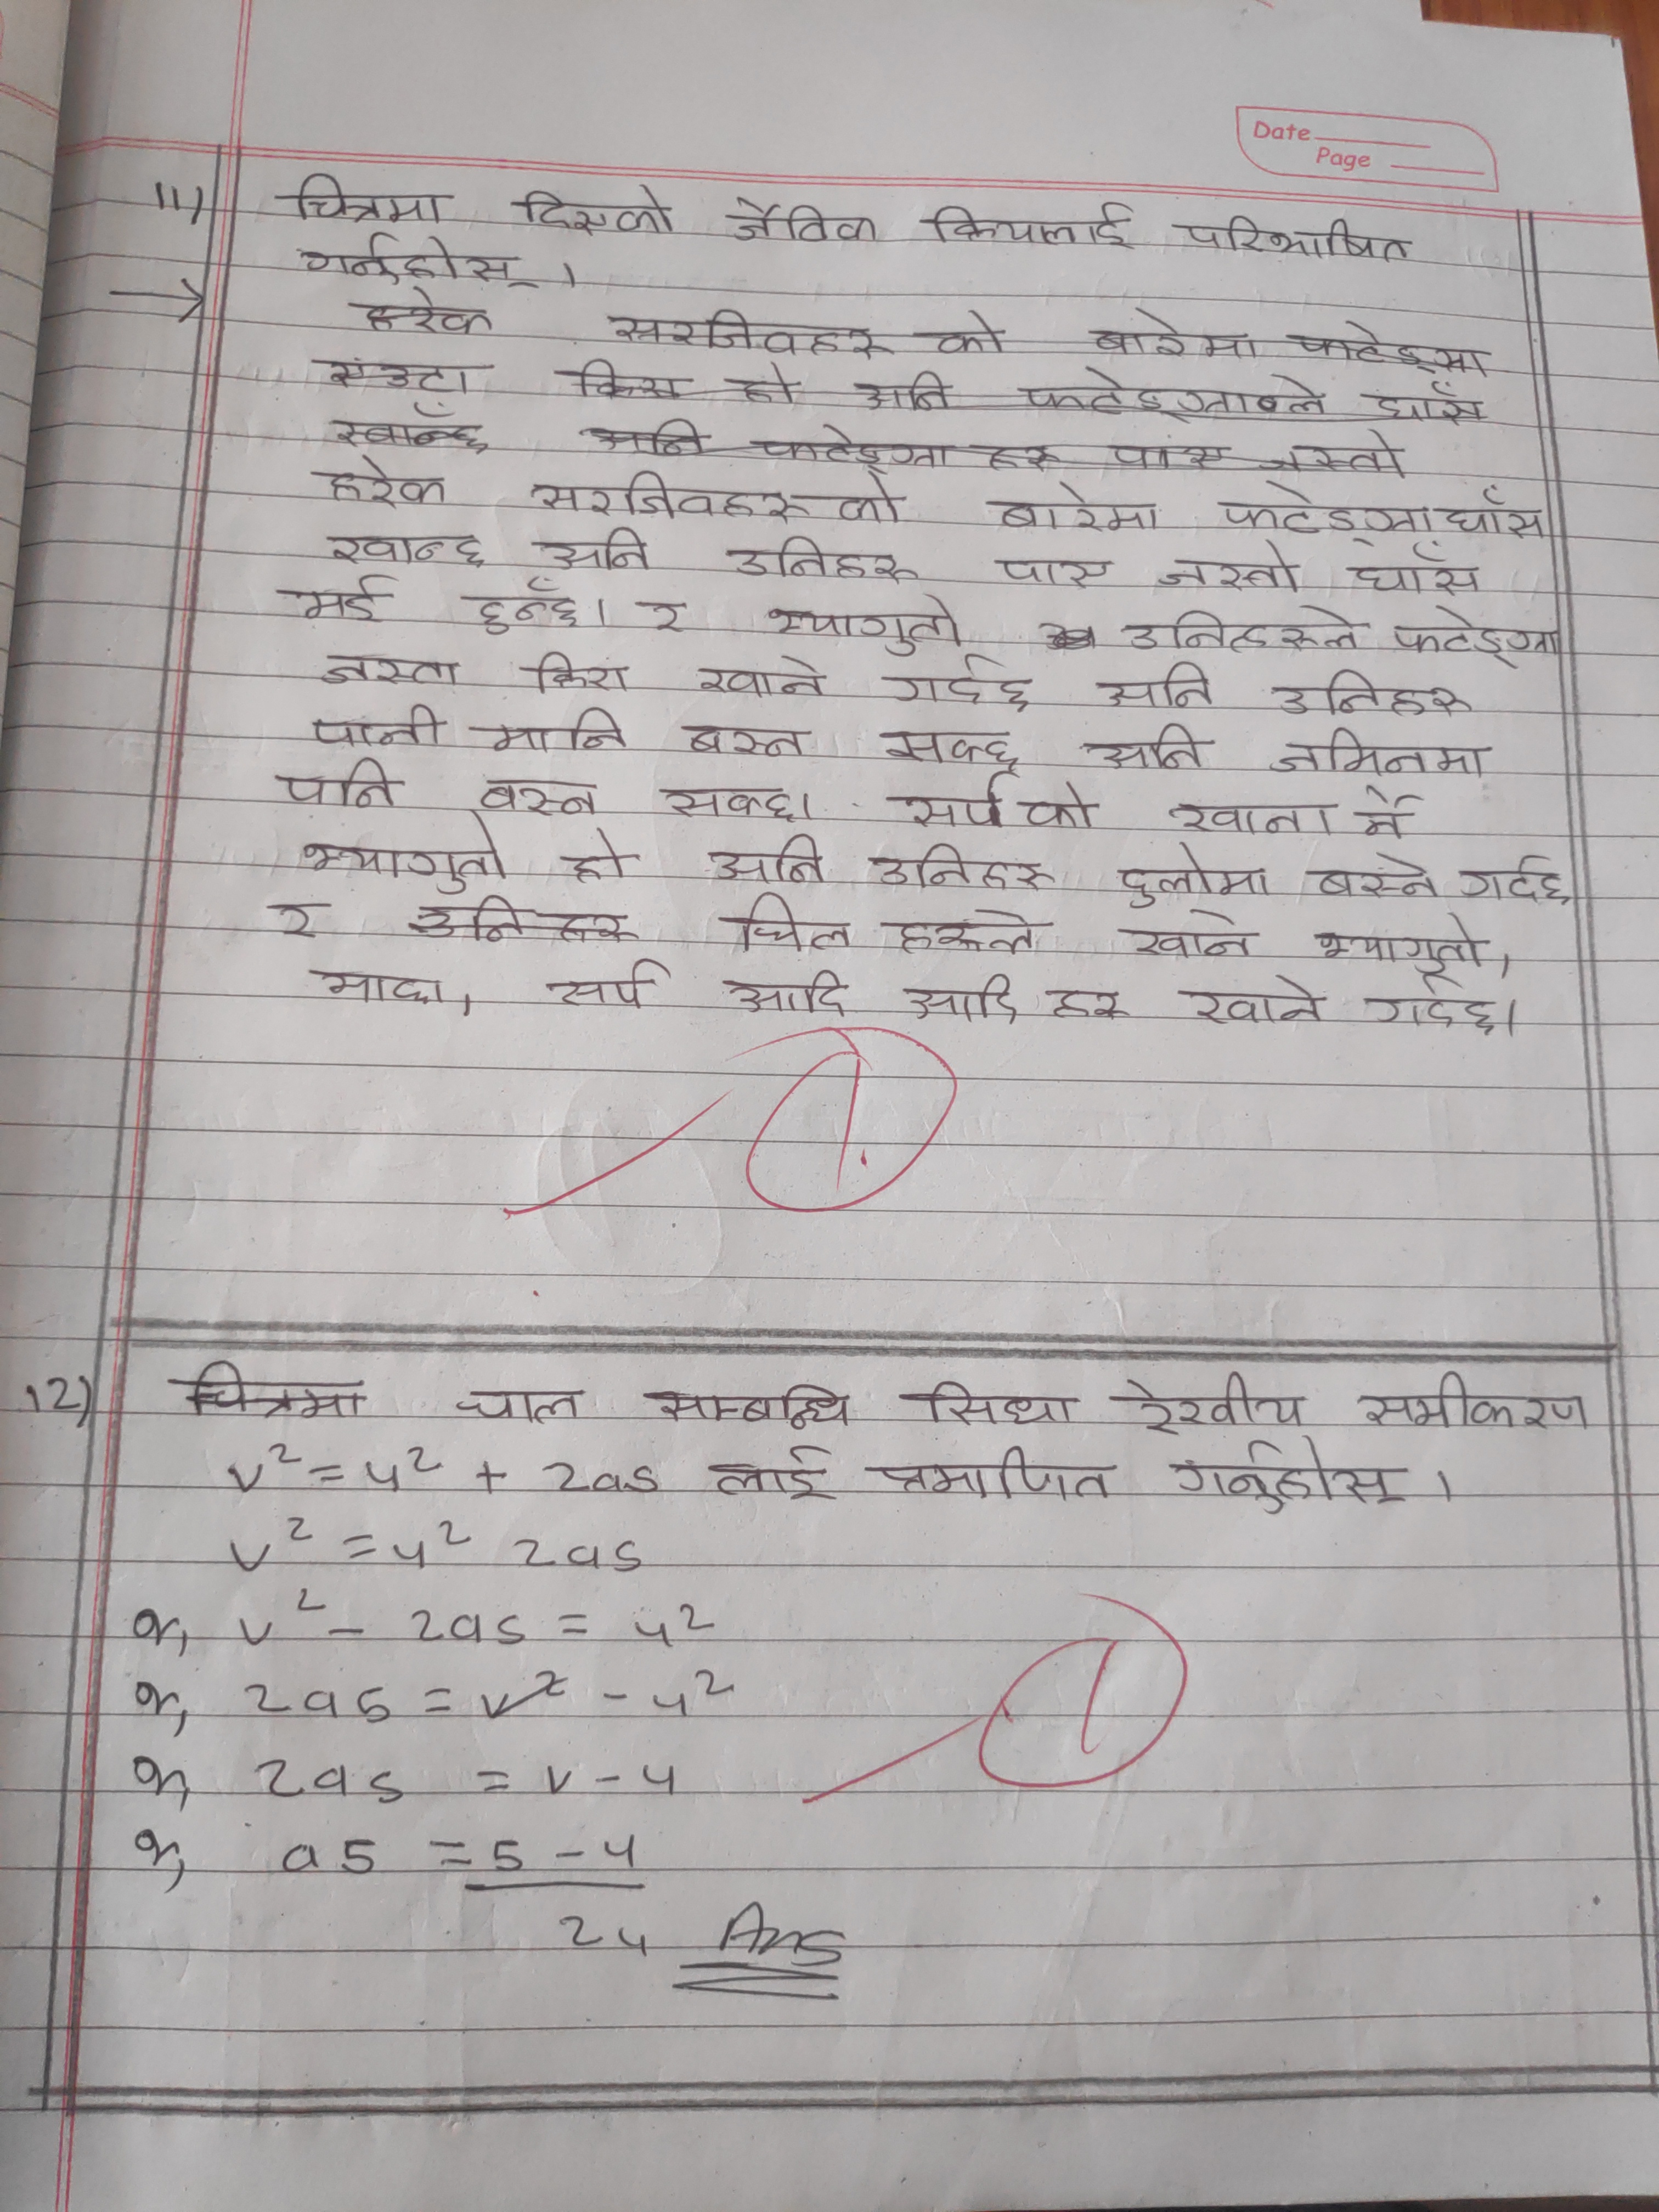 Date
Page
11) चित्रमा दिएको जैविक क्रियालाई परिभाषित
गर्नुहोस् ।
→ हरेक सरजिवहरु को बारेमा फटेङ्ग्रा
एउटा किरा हो अनि फटेङ्ग्राले घाँस
खान्छँ अनि फटेङ्ग्रा हरु पारा जस्तो
हरेक सरजिवहरु को बारेमा फटेङ्ग्रा घाँस
खान्छ अनि उनिहरु जस्तो घाँस
मई हुन्छँ। र भ्यागुतो उनिहरुले फटेङ्ग्रा
जस्ता किरा खाने गर्दछ अनि उनिहरु
पानी मानि बस्न सक्छ अनि जमिनमा
पनि बस्न सक्छ। सर्प को खाना नै
भ्यागुतो हो अनि उनिहरु दुलोमा बस्ने गर्दछ
र उनिहरु चिल हरुले खाने भ्यागुतो,
माछा, सर्प आदि आदि हरु खाने गर्दछ।
1
12) चित्रमा चाल सम्बन्धि सिधा रेखीय समीकरण
v² = u² + 2as लाई प्रमाणित गर्नुहोस् ।
v² = u² 2as
or, v² - 2as = u²
or, 2as = v² - u²
or, 2as = v - u
or, as = 5 - 4
24 Ans
1